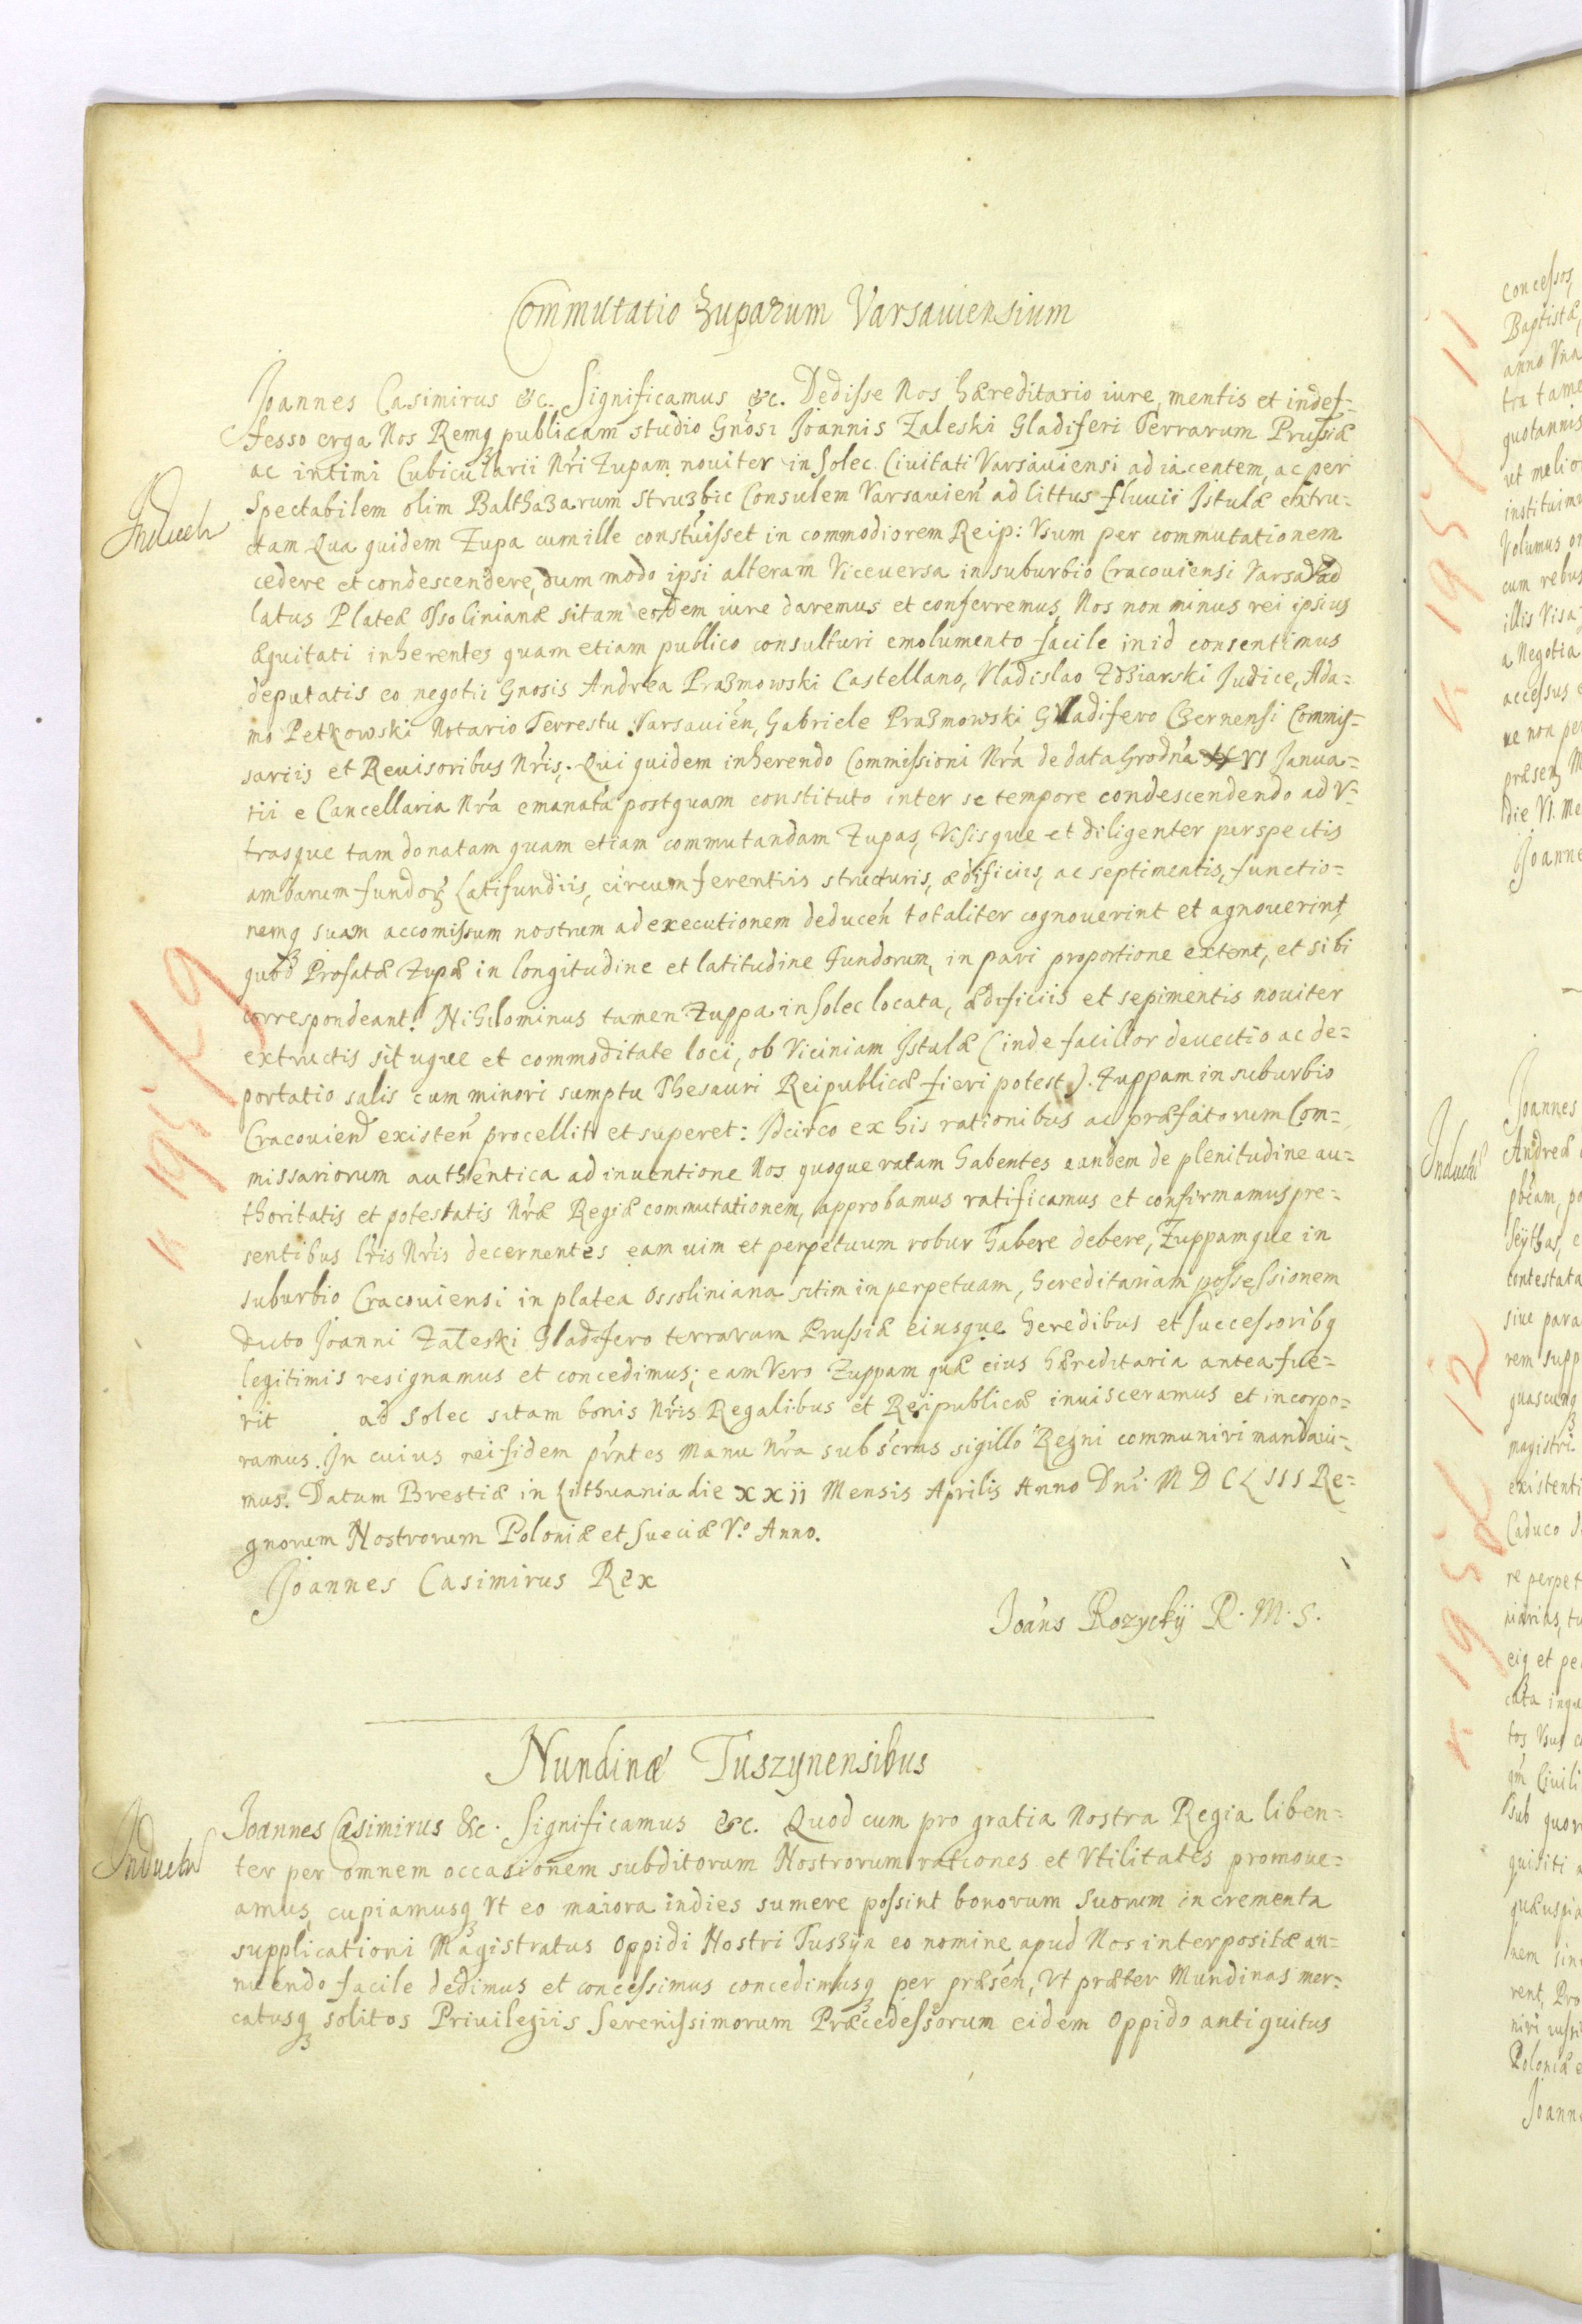 Commutatio Zuparum Varsauiensium
Joannes Casimirus &c. Significamus &c. Dedisse Nos hæreditario iure, mentis et indef-
fesso erga Nos Remq publicam studio Gnosi Joannis Zaleski Gladiferi Terrarum Prusiæ
ac intimi Cubicularii Nri Zupam nouiter in Solec Ciuitati Varsauiensi ad iacentem, ac per
Spectabilem olim Balthazarum Struzbic Consulem Varsauien ad littus fluuii Istulæ extru-
ctam Qua quidem Zupa cum ille constuisset in commodiorem Reip: Vsum per commutationem
cedere et condescendere, dum modo ipsi alteram Viceversa in suburbio Cracouiensi Varsa ad
latus Plateæ Ossolinianæ sitam eodem iure daremus et conferremus, Nos non minus rei ipsius
æquitati inherentes quam etiam publico consulturi emolumento facile in id consentimus
deputatis eo negotii Gnosis Andrea Prazmowski Castellano, Vladislao Zdziarski Judice, Ada-
mo Petkowski Notario Terrestu Varsauien, Gabriele Prazmowski Gladifero Czernensi Commis-
sariis et Reuisoribus Nris. Qui quidem inherendo Commissioni Nra de data Grodna VI Janua-
rii e Cancellaria Nra emanata postquam constituto inter se tempore condescendendo ad V-
trasque tam donatam quam etiam commutandam Zupas, Visisque et diligenter perspectis
ambarum fundor Latifundiis, circumferentiis structuris, ædificiis, ac septimentis, functio-
nemq suam accomissum nostrum ad executionem deducen totaliter cognouerint et agnouerint
quod Profatæ Zupæ in longitudine et latitudine Fundorum, in pari proportione extent, et sibi
correspondeant. Nihilominus tamen Zuppa in Solec locata, ædificiis et sepimentis nouiter
extructis situque et commoditate loci, ob Viciniam Istulæ (inde facilior deuectio ac de-
portatio salis cum minori sumptu Thesauri Reipublicæ fieri potest). Zuppam in suburbio
Cracouien existen procellit et superet: Idcirco ex his rationibus ac præfatorum Com-
missariorum authentica ad inuentione Nos quoque ratam habentes eandem de plenitudine au-
thoritatis et potestatis Nræ Regiæ commutationem, approbamus ratificamus et confirmamus pre-
sentibus lris Nris decernentes eam uim et perpetuum robur habere debere, Zuppamque in
suburbio Cracouiensi in platea Ossoliniana sitim in perpetuam, hereditariam possessionem
dicto Joanni Zaleski Gladifero terrarum Prussiæ eiusque heredibus et successoribq
legitimis resignamus et concedimus; eam Vero Zuppam quæ eius hæreditaria antea fue-
rit ad Solec sitam bonis Nris Regalibus et Reipublicæ inuisceramus et incorpo-
ramus. In cuius rei fidem prntes Manu Nra subscras sigillo Regni communiri mandaui-
mus. Datum Brestiæ in Lithuania die xxii Mensis Aprilis Anno Dni M D C L III Re-
gnorum Nostrorum Poloniæ et Sueciæ V.o Anno.
Joannes Casimirus Rex
Joans Rozyckÿ R. M. S.
Nundinæ Tuszynensibus
Joannes Casimirus &c. Significamus &c. Quod cum pro gratia Nostra Regia liben-
ter per omnem occasionem subditorum Nostrorum rationes et Vtilitates promoue-
amus, cupiamusq Vt eo maiora indies sumere possint bonorum Suorum incrementa
supplicationi Magistratus Oppidi Nostri Tuszyn eo nomine apud Nos interpositæ an-
nuendo facile dedimus et concessimus concedimusq per præsen, Vt præter Mundinas mer-
catusq solitos Priuilegiis Serenissimorum Præcedessorum eidem Oppido antiquitus